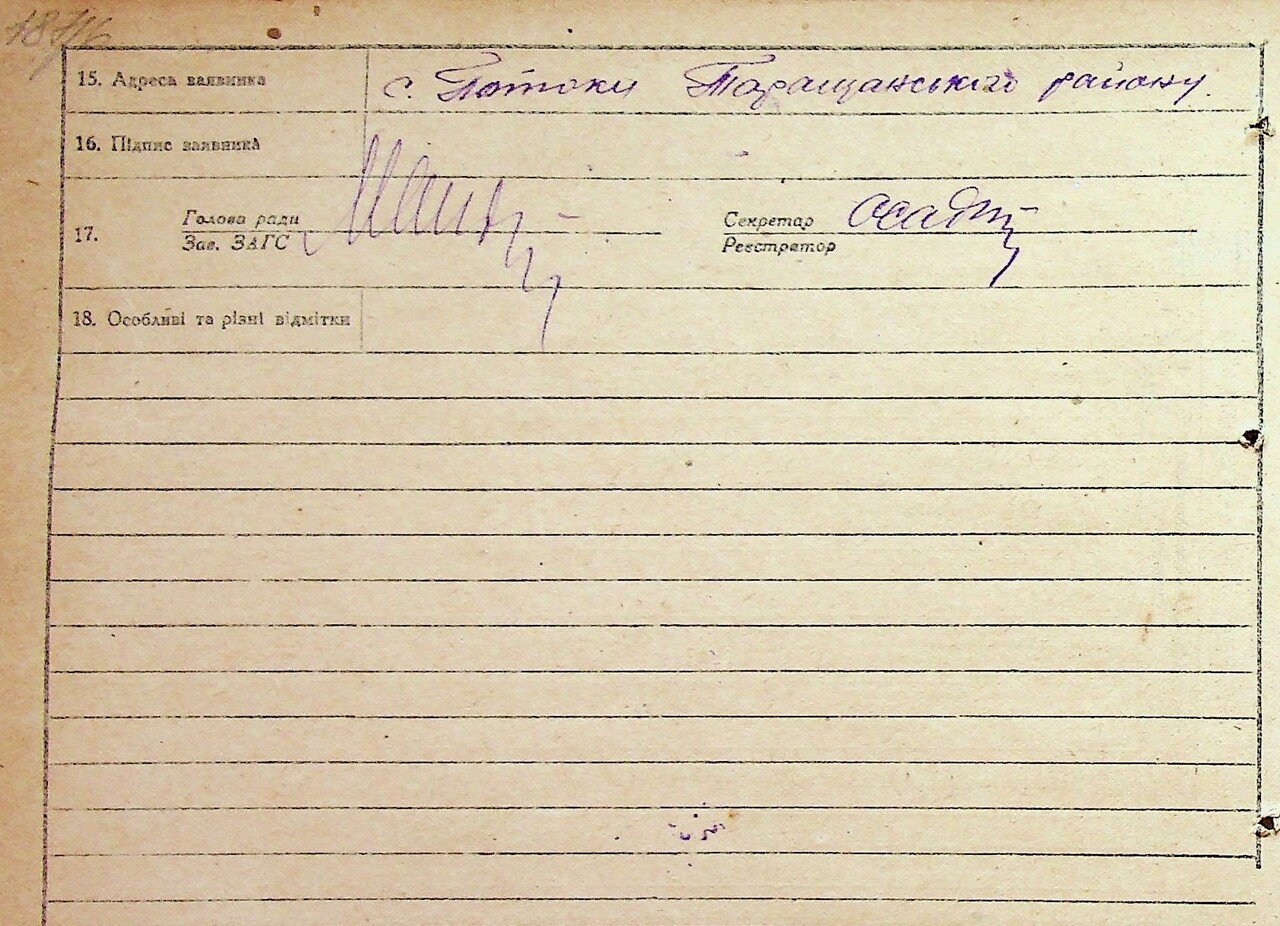 15. Адреса заявника с. Потоки Таращанського району.
16. Підпис заявника
17. Голова ради Секретар
Зав. ЗАГС Реєстратор
18. Особливі та різні відмітки